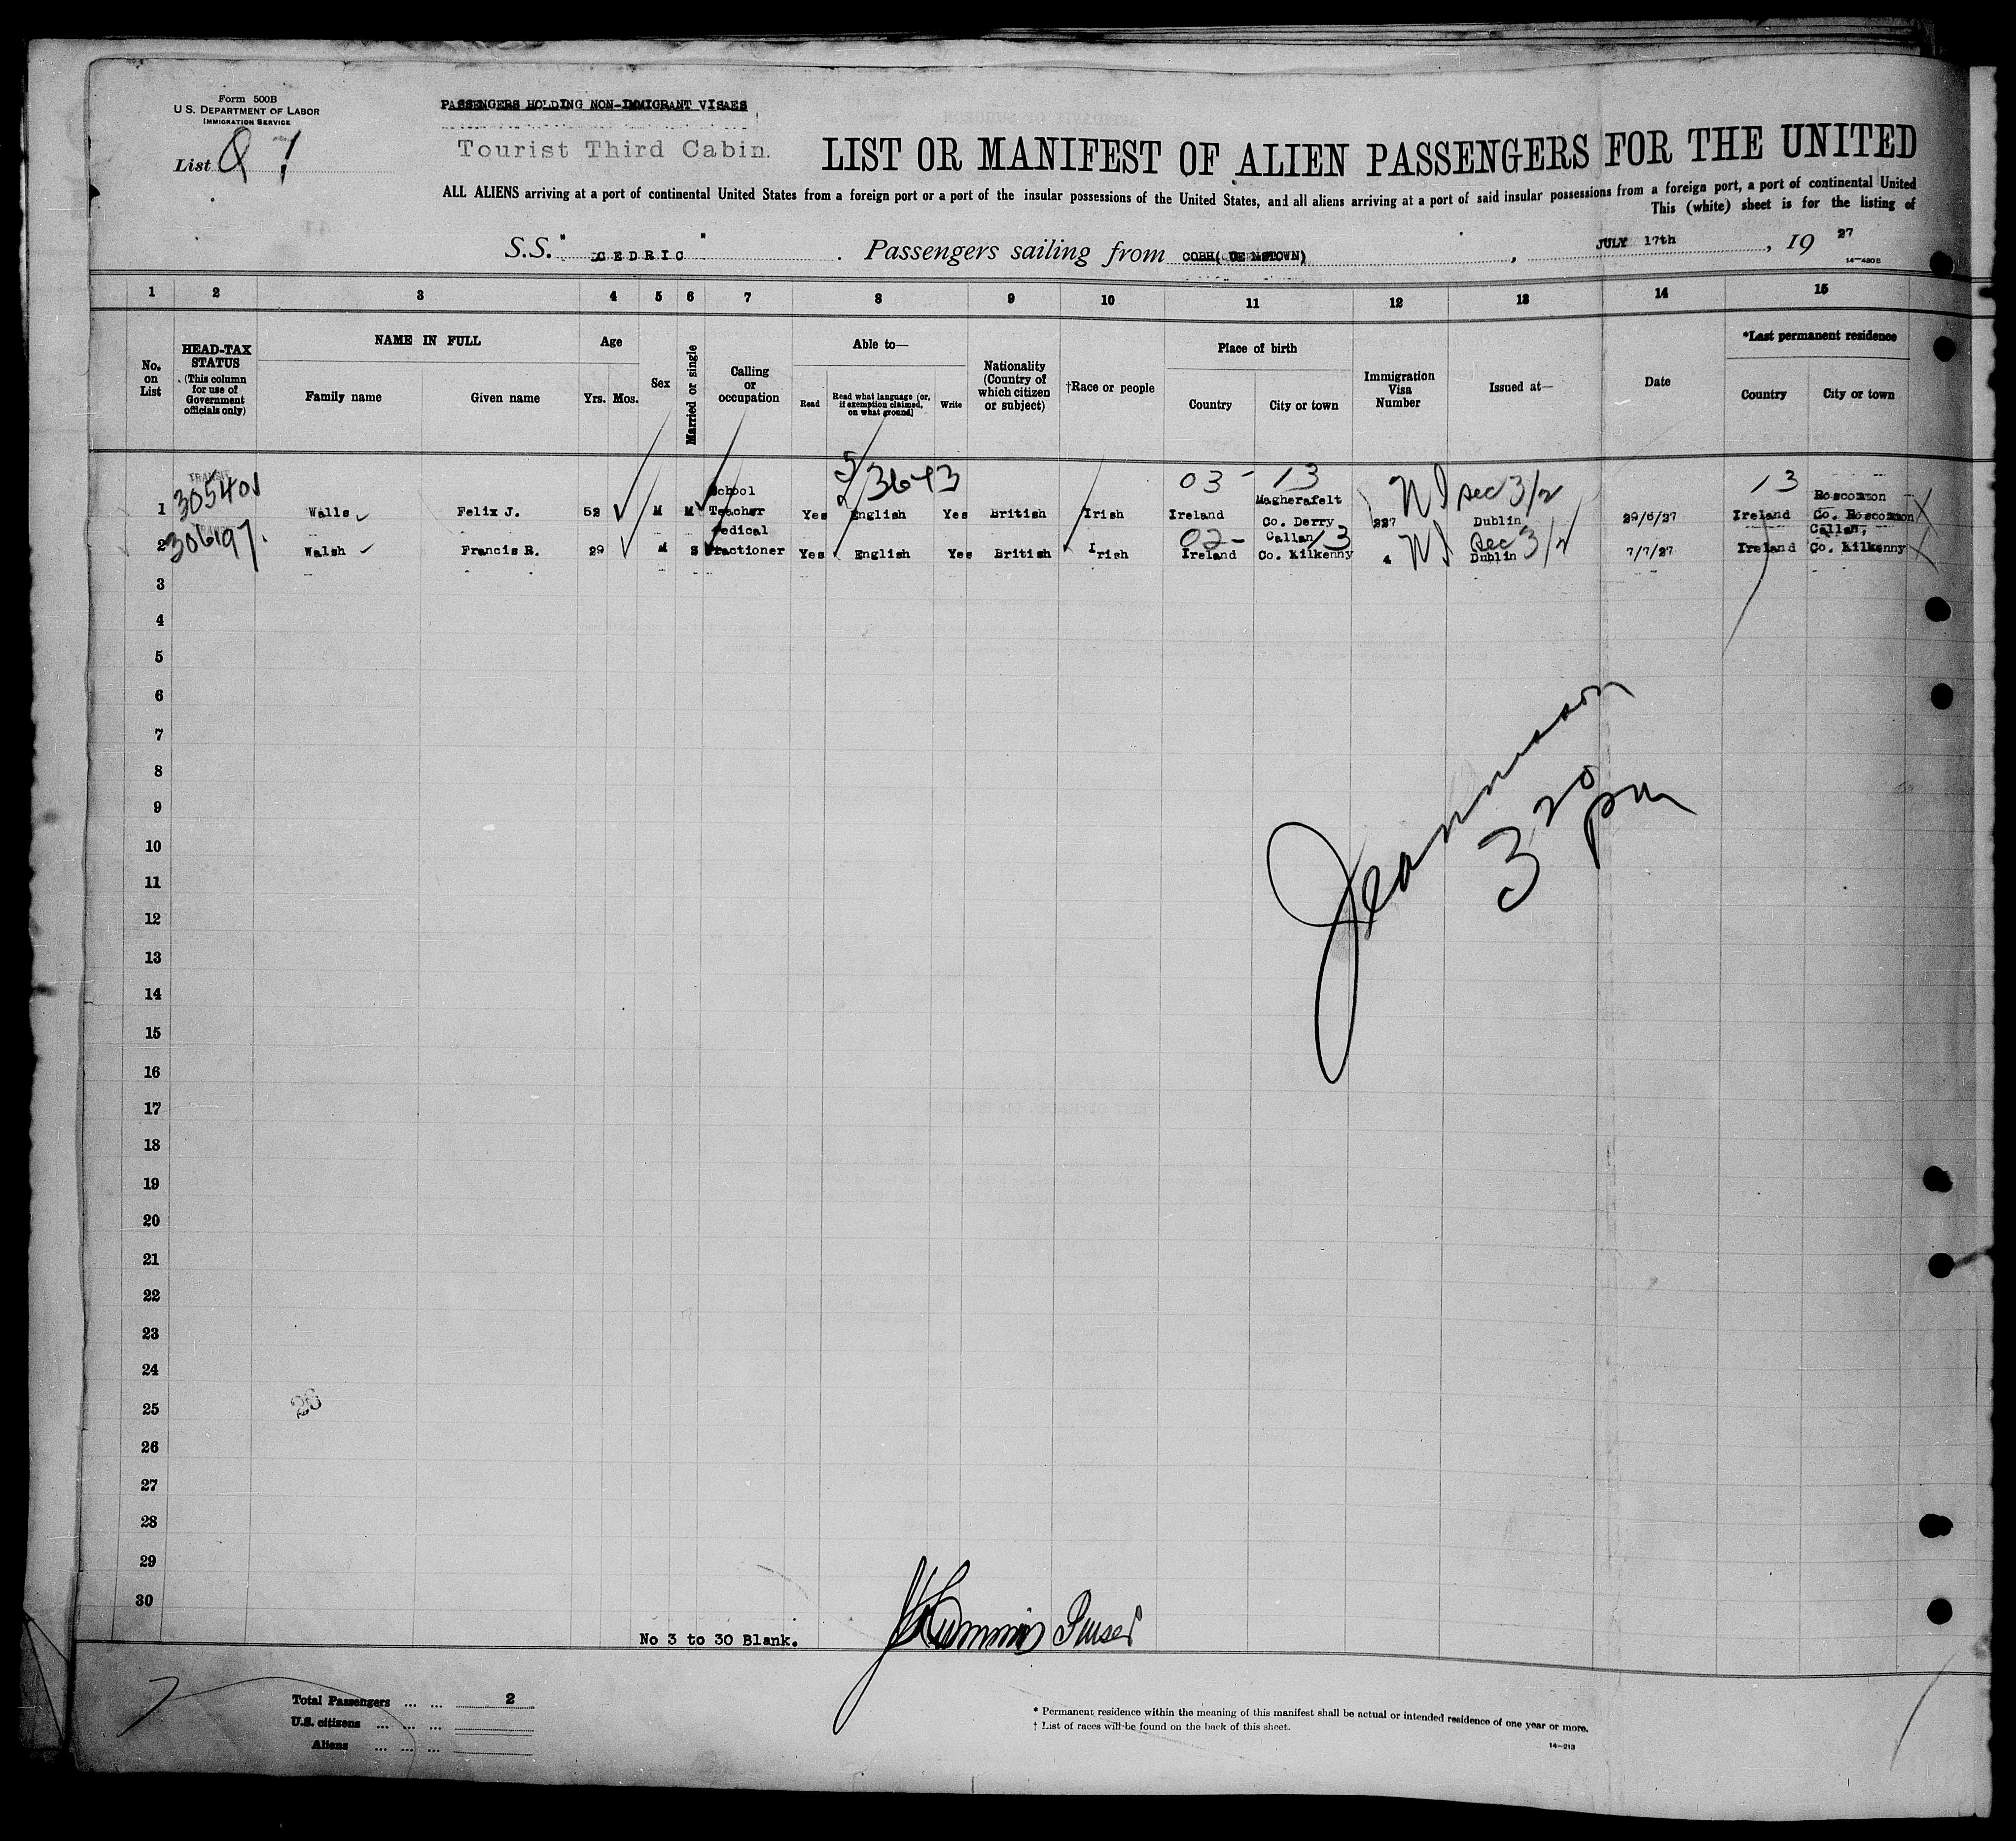 Form 500B
U. S. DEPARTMENT OF LABOR
IMMIGRATION SERVICE
List Q 7
PASSENGERS HOLDING NON-IMMIGRANT VISAES
Tourist Third Cabin.
LIST OR MANIFEST OF ALIEN PASSENGERS FOR THE UNITED
ALL ALIENS arriving at a port of continental United States from a foreign port or a port of the insular possessions of the United States, and all aliens arriving at a port of said insular possessions from a foreign port, a port of continental United
This (white) sheet is for the listing of
S.S. "CEDRIC". Passengers sailing from COBH( , JULY 17th , 19 27
14—480B
1 2 3 4 5 6 7 8 9 10 11 12 13 14 15
No. on List
HEAD-TAX STATUS (This column for use of Government officials only)
NAME IN FULL
Family name Given name
Age
Yrs. Mos.
Sex
Married or single
Calling or occupation
Able to—
Read
Read what language [or, if exemption claimed, on what ground]
Write
Nationality (Country of which citizen or subject)
†Race or people
Place of birth
Country City or town
Immigration Visa Number
Issued at—
Date
*Last permanent residence
Country City or town
TRANSIT
305401
3643
03 - 13
NI sec 3/2
13
1 Walls Felix J. 52 M M School Teacher Yes English Yes British Irish Ireland Magherafelt Co. Derry 227 Dublin 29/6/27 Ireland Roscommon Co. Roscommon
TRANSIT
306197
02- 13
NI sec 3/2
2 Walsh Francis R. 29 M S Medical Practioner Yes English Yes British Irish Ireland Callan Co. Kilkenny 4 Dublin 7/7/27 Ireland Callan, Co. Kilkenny
3
4
5
6
7
8
9
10
11
12
13
14
15
16
17
18
19
20
21
22
23
24
25
26
27
28
29
30
Jeannason
3 20 pm
26
No 3 to 30 Blank.
Purser
Total Passengers ... ... 2
U.S. citizens ... ... ...
Aliens ... ... ...
* Permanent residence within the meaning of this manifest shall be actual or intended residence of one year or more.
† List of races will be found on the back of this sheet.
14—213